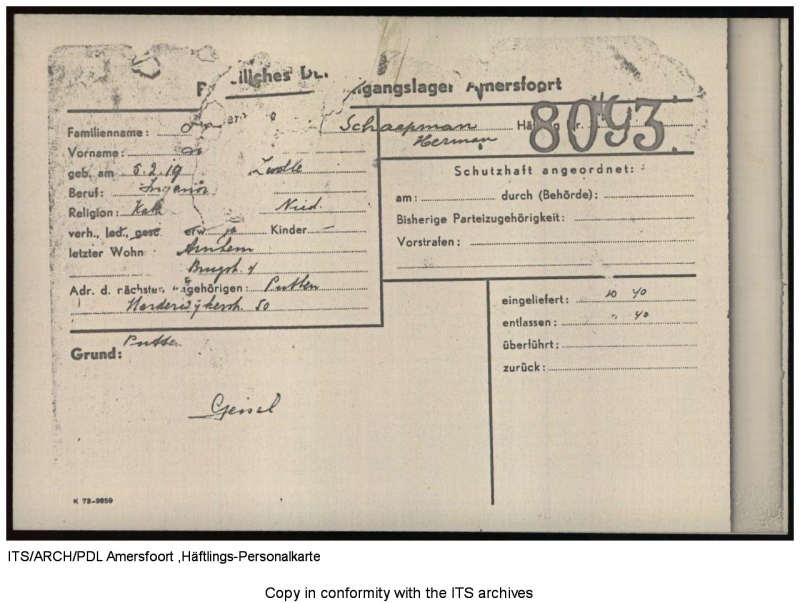 gangslager Amersfoort
Familienname: Schaepman
Vorname: Herman
Häftling Nr. 8093
geb. am 5.2.19 Zwolle
Beruf: Ingenieur
Religion: Kath Nied
verh., led., gesc Kinder
letzter Wohn Arnhem
Adr. d. nächsten Angehörigen: Putten
Harderwijkerstr. 50
Schutzhaft angeordnet:
am: durch (Behörde):
Bisherige Parteizugehörigkeit:
Vorstrafen:
eingeliefert: 10 40
entlassen: 40
überführt:
zurück:
Grund: Putten
Geisel
K 73-9859
ITS/ARCH/PDL Amersfoort ,Häftlings-Personalkarte
Copy in conformity with the ITS archives